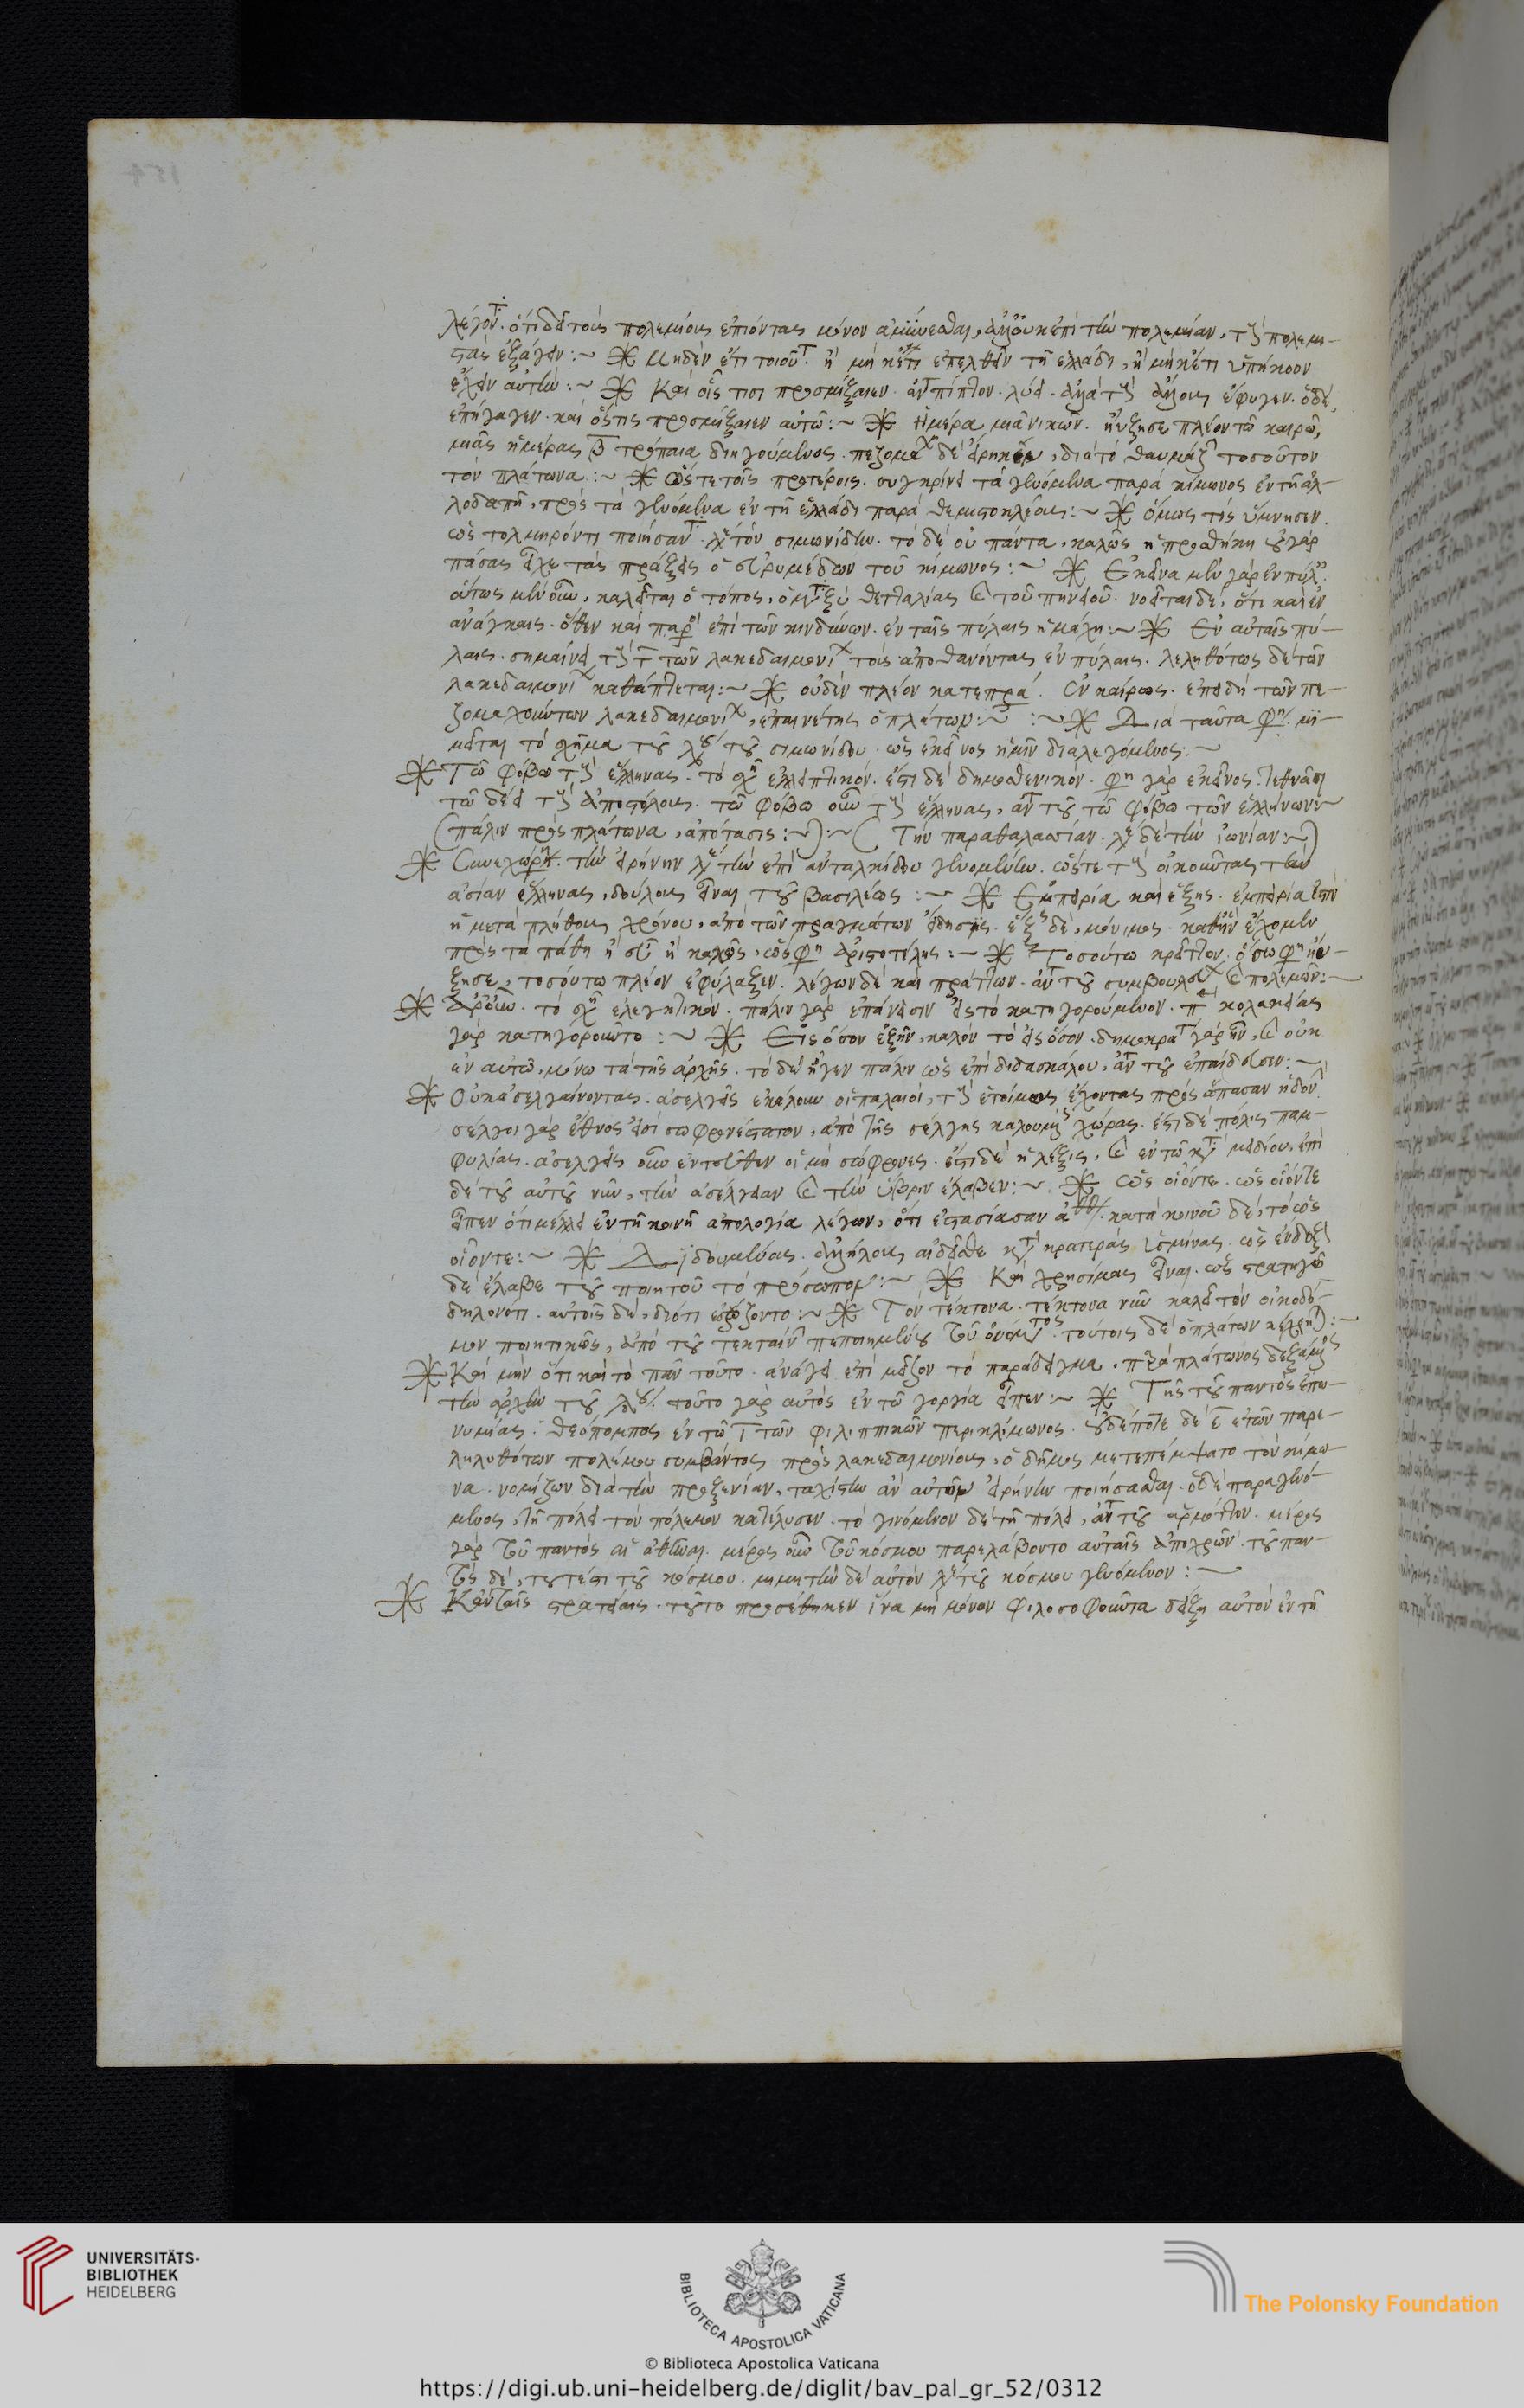 λέγοντ. ὅτι δεῖ τοὺς πολεμίους ἐπιόντας μόνον ἀμύνεσθαι, ἀλλ' οὐκ ἐπὶ τὴν πολεμίαν, τοὺς πολεμι-
στὰς ἐξάγειν :~ Μηδὲν ἔτι τοιοῦτ. ἢ μηκέτι ἐπελθεῖν τῇ ἑλλάδι, ἢ μηκέτι ὑπήκοον
ἔχειν αὐτὴν :~ Καὶ οἷς τισι προσμίξαιεν. ἀντιπίπτον. λύει. ἀλλὰ τοὺς ἄλλους ἔφυγεν. ὁ δὲ
ἐπήγαγεν. καὶ ὅστις προσμίξαιεν αὐτῶ :~ ἡμέρα μιᾶ νικῶν. ηὔξησε πλέον τῶ καιρῶ,
μιᾶς ἡμέρας β τρόπαια διηγούμενος. πεζομαχ δὲ εἴρηκεν, διὰ τὸ θαυμάζ τοσοῦτον
τὸν πλάτωνα :~ ὥστε τοῖς προτέροις. συγκρίνει τὰ γενόμενα παρὰ κίμωνος ἐν τῇ ἀλ-
λοδαπῇ, πρὸς τὰ γενόμενα ἐν τῇ ἑλλάδι παρὰ θεμιστοκλέους :~ ὅμως τίς ὕμνησεν.
ὡς τολμηρόν τι ποιήσαντ. λέγει τὸν σιμωνίδην. τὸ δὲ οὐ πάντα, καλῶς ἡ προσθήκη οὐ γὰρ
πάσας εἶχε τὰς πράξεις ὁ εὐρυμέδων τοῦ κίμωνος :~ Ἐκεῖνα μὲν γὰρ ἐν πύλ.
οὕτως μὲν οὖν, καλεῖται ὁ τόπος, ὁ μεταξὺ θετταλίας καὶ τοῦ πηνειοῦ. νοεῖται δὲ, ὅτι καὶ ἐν
ἀνάγκαις. ὅθεν καὶ παρ ἐπὶ τῶν κινδύνων. ἐν ταῖς πύλαις ἡ μάχη :~ Ἐν αὐταῖς πύ-
λαις. σημαίνει τοὺς τ τῶν λακεδαιμονί τοὺς ἀποθανόντας ἐν πύλαις. λεληθότως δὲ τῶν
λακεδαιμονί καθάπτεται :~ οὐδὲν πλέον κατεπρα. εὐκαίρως. ἐπειδὴ τῶν πε-
ζομαχούντων λακεδαιμονί, ἐπαινέτης ὁ πλάτων :~ :~ Διὰ ταῦτα φη. μι-
μεῖται τὸ σχῆμα τοῦ λόγου τοῦ σιμωνίδου. ὡς ἐκεῖνος ἡμῖν διαλεγόμενος :~
Τῶ φόβω τοὺς ἕλληνας. τὸ σχῆ ἐλλειπτικόν. ἔστι δὲ δημοσθενικόν. φη γὰρ ἐκεῖνος. τεθνᾶσι
τῶ δέει τοὺς ἀποστόλους. τῶ φόβω οὖν τοὺς ἕλληνας, ἀντ τοῦ τῶ φόβω τῶν ἑλλήνων :~
(πάλιν πρὸς πλάτωνα, ἀπότασις :~) :~ (Τὴν παραθαλασσίαν. λέγει δὲ τὴν ἰωνίαν :~)
Συνεχώρη. τὴν εἰρήνην λέγει τὴν ἐπὶ ἀνταλκίδου γενομένην. ὥστε τοὺς οἰκοῦντας τὴν
ἀσίαν ἕλληνας, δούλους εἶναι τοῦ βασιλέως :~ Ἐμπειρία καὶ ἕξις. ἐμπειρία ἐστὶν
ἡ μετὰ πλήθους χρόνου, ἀπὸ τῶν πραγμάτων εἴδησις. ἕξ δὲ, μόνιμος. καθ' ἣν ἔχομεν
πρὸς τὰ πάθη ἢ εὖ ἢ κακῶς, ὥς φη ἀριστοτέλης :~ Τοσούτω κρεῖττον. ὅσω φη ηὔ-
ξησε, τοσούτω πλέον ἐφύλαξεν. λέγων δὲ καὶ πράττων. ἀντ τοῦ συμβουλεύ καὶ πολεμῶν :~
Ἆρ' οὖν. τὸ σχῆ ἐλεγκτικόν. πάλιν γὰρ ἐπάνεισιν εἰς τὸ κατηγορούμενον. π κολακείας
γὰρ κατηγόρουντο :~ Εἰς ὅσον ἐξῆν, καλὸν τὸ εἰς ὅσον. δημοκρατ γὰρ ἦν, καὶ οὐκ
ἐν αὐτῶ, μόνω τὰ τῆς ἀρχῆς. τὸ δὲ ἦγεν πάλιν ὡς ἐπὶ διδασκάλου, ἀντ τοῦ ἐπαίδευσεν :~
Οὐκ ἀσελγαίνοντας. ἀσελγεῖς ἐκάλουν οἱ παλαιοὶ, τοὺς ἑτοίμως ἔχοντας πρὸς ἅπασαν ἡδον.
σέλγοι γὰρ ἔθνος εἰσὶ σωφρονέστατον, ἀπὸ τῆς σέλγης καλουμένης χώρας. ἔστι δὲ πόλις παμ-
φυλίας. ἀσελγεῖς οὖν ἐντεῦθεν οἱ μὴ σώφρονες. ἔστι δὲ ἡ λέξις, καὶ ἐν τῶ κατ μειδίου, ἐπὶ
δὲ τοῦ αὐτοῦ νῦν, τὴν ἀσέλγειαν καὶ τὴν ὕβριν ἔλαβεν :~ ὡς οἷόν τε. ὡς οἷόν τε
εἶπεν ὅτι μέλλει ἐν τῇ κοινῇ ἀπολογία λέγειν, ὅτι ἐστασίασαν ἀθη. κατὰ κοινοῦ δὲ, τὸ ὡς
οἷόν τε :~ Αἰδουμένους. ἀλλήλους αἰδεῖσθε κατ κρατερὰς ὑσμίνας. ὡς ἐνδοξ
δὲ ἔλαβε τοῦ ποιητοῦ τὸ πρόσωπον :~ Καὶ χρησίμους εἶναι. ὡς στρατηγοῦ
δηλονότι. αὐτοῖς δὲ, διότι ἐσώζοντο :~ Τὸν τέκτονα. τέκτονα νῦν καλεῖ τὸν οἰκοδό-
μον ποιητικῶς, ἀπὸ τοῦ τεκταίν πεποιημένου τοῦ ὀνόματος. τούτοις δὲ ὁ πλάτων κέχρηται :~
Καὶ μὴν ὅτι καὶ τὸ πᾶν τοῦτο. ἀνάγει ἐπὶ μεῖζον τὸ παράδειγμα. παρὰ πλάτωνος δεξάμενος
τὴν ἀρχὴν τοῦ λόγου. τοῦτο γὰρ αὐτὸς ἐν τῶ γοργία εἶπεν :~ Τῆς τοῦ παντὸς ἐπω-
νυμίας. θεόπομπος ἐν τῶ ι τῶν φιλιππικῶν περὶ κίμωνος. οὐδέποτε δὲ ε ἐτῶν παρε-
ληλυθότων πολέμου συμβάντος πρὸς λακεδαιμονίους, ὁ δῆμος μετεπέμψατο τὸν κίμω-
να. νομίζων διὰ τὴν προξενίαν, ταχίστην ἂν αὐτὸν εἰρήνην ποιήσασθαι. ὁ δὲ παραγενό-
μενος, τῇ πόλει τὸν πόλεμον κατέλυσεν. τὸ γινόμενον δὲ τῇ πόλει, ἀντ τοῦ ἁρμόττον. μέρος
γὰρ τοῦ παντὸς αἱ ἀθῆναι. μέρος οὖν τοῦ κόσμου παρελάβοντο αὐταῖς ἀποχρῶν. τοῦ παν-
τὸς δὲ, τουτέστι τοῦ κόσμου. μιμητὴν δὲ αὐτὸν λέγει τοῦ κόσμου γενόμενον :~
Κἀν ταῖς στρατείαις. τοῦτο προσέθηκεν ἵνα μὴ μόνον φιλοσοφοῦντα δείξῃ αὐτὸν ἐν τῇ
UNIVERSITÄTS-
BIBLIOTHEK
HEIDELBERG
BIBLIOTECA APOSTOLICA VATICANA
The Polonsky Foundation
© Biblioteca Apostolica Vaticana
https://digi.ub.uni-heidelberg.de/diglit/bav_pal_gr_52/0312